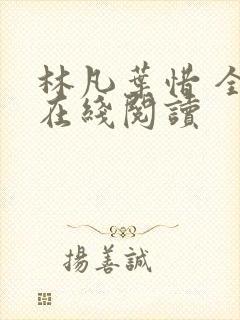 林凡葉惜 全
在綫閱讀
揚善誠